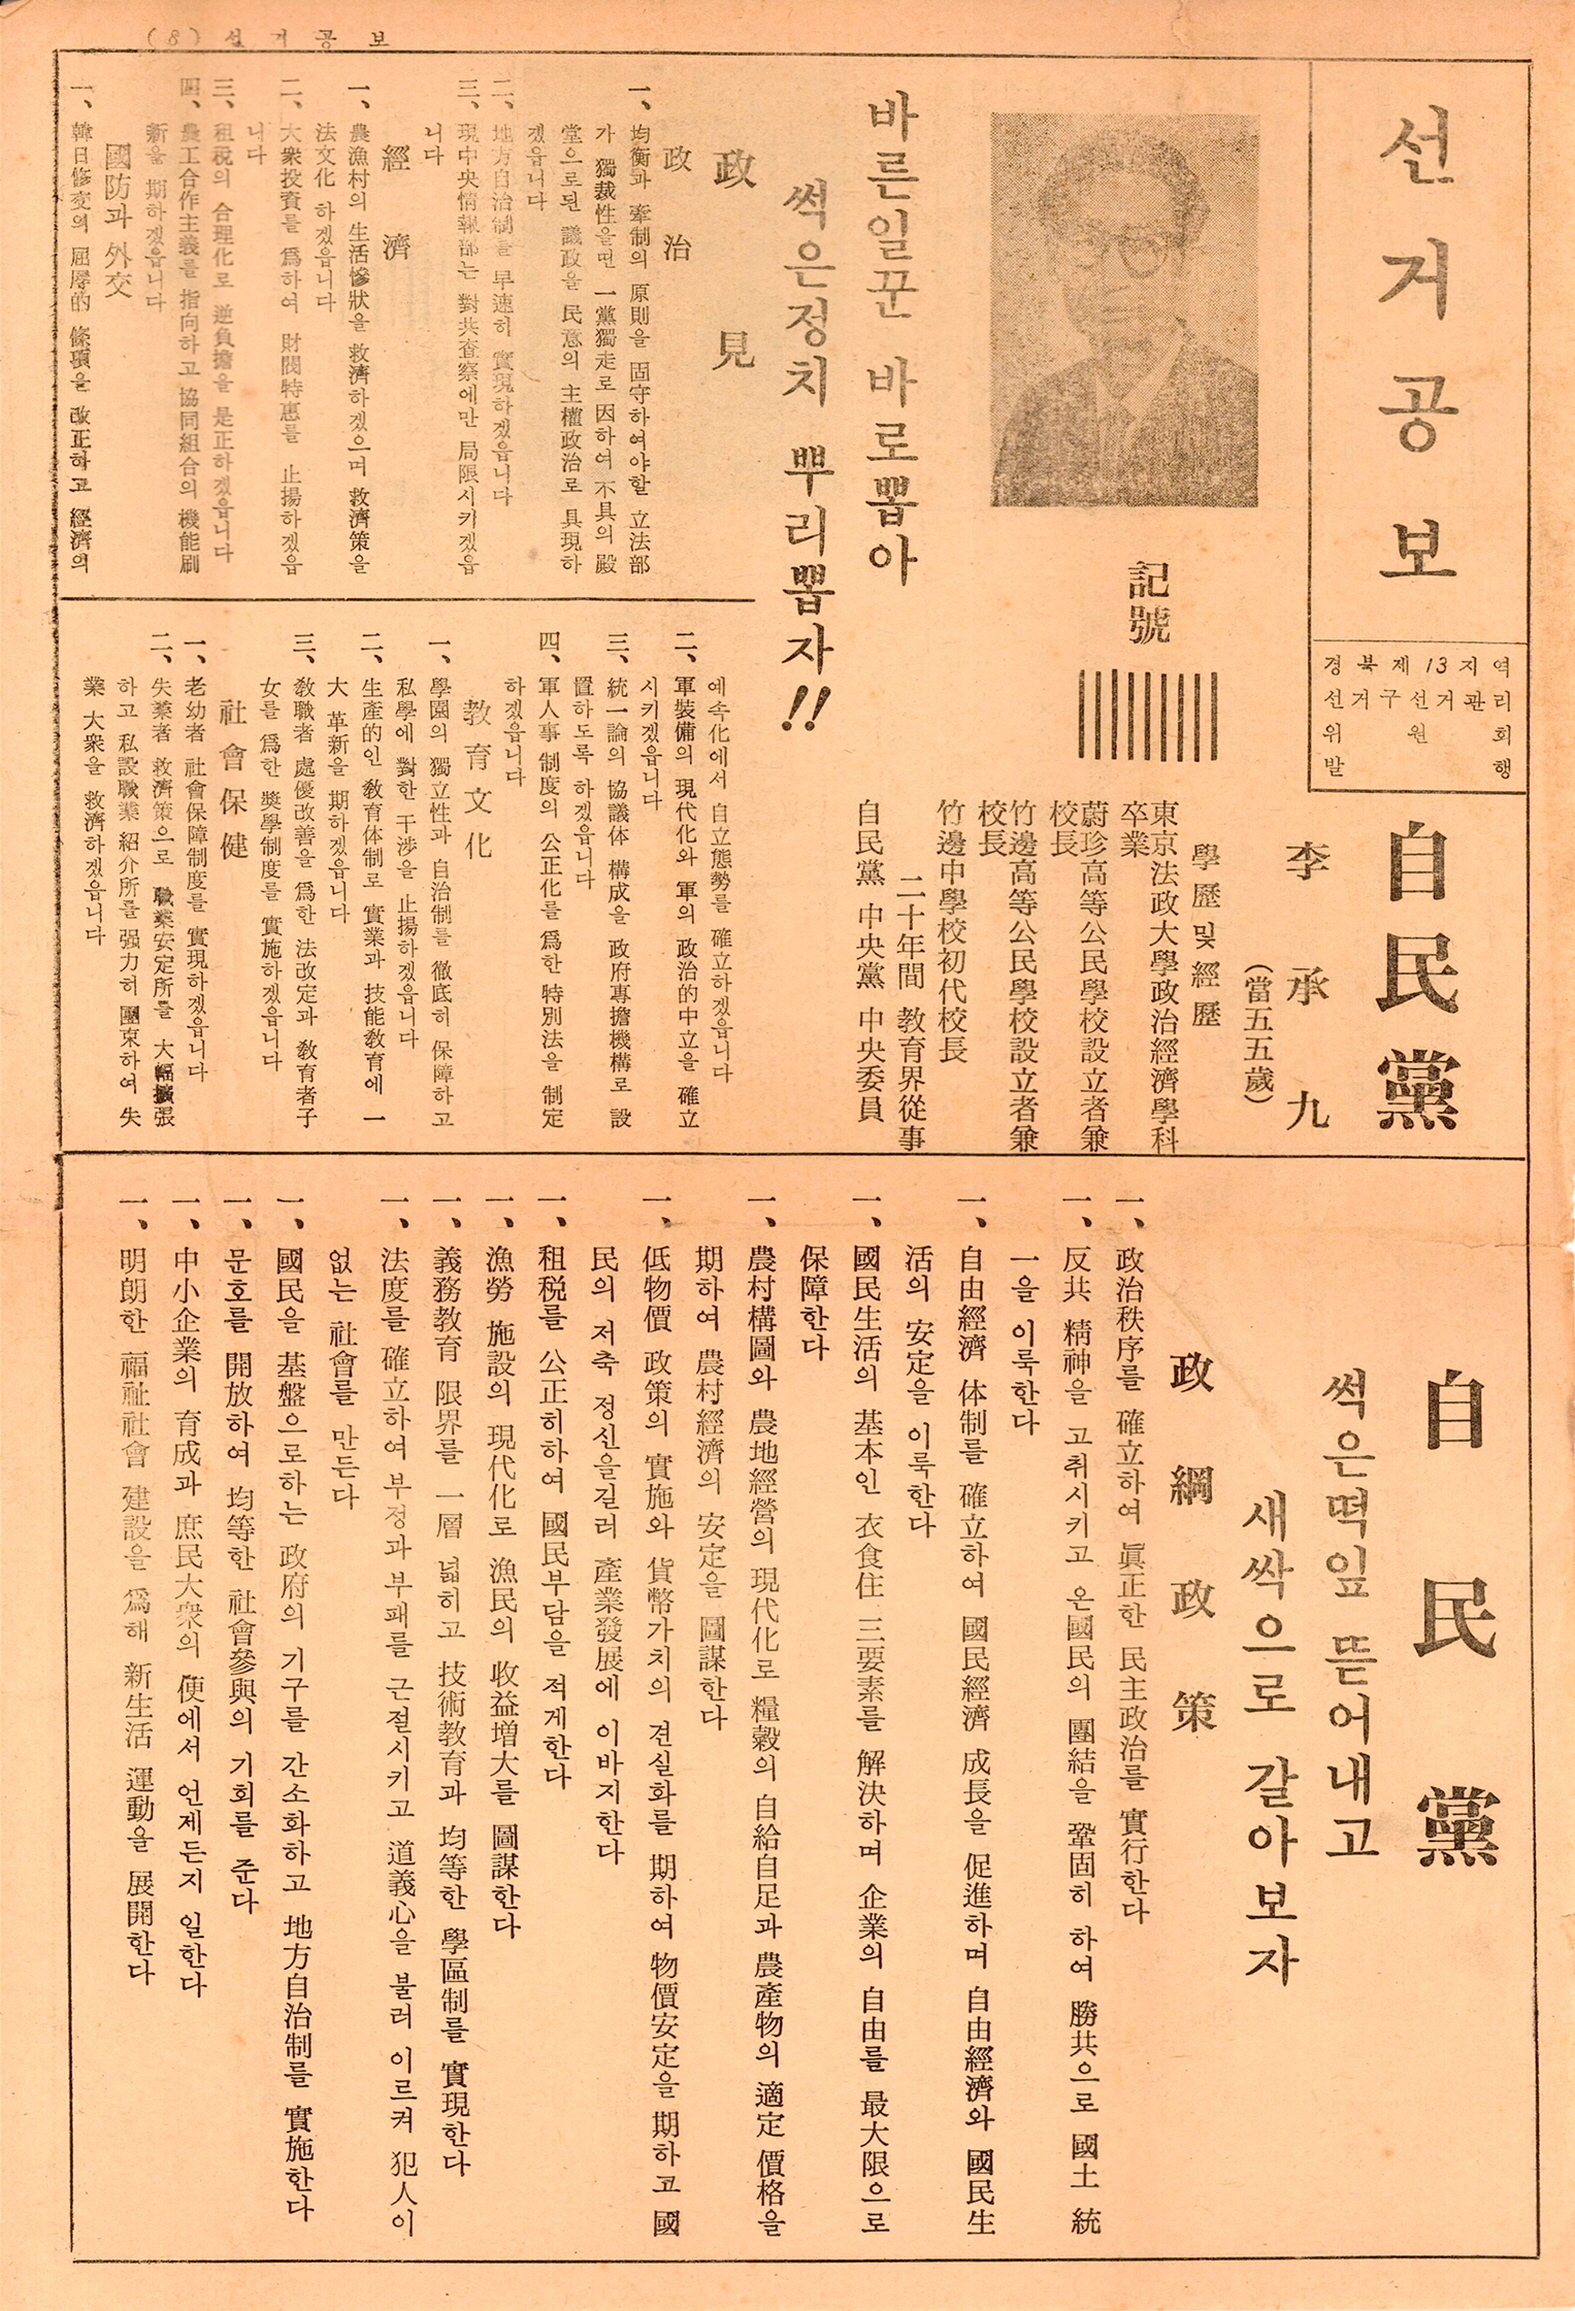 (8) 선거공보
선거공보
경북제13지역
선거구선거관리
위원회
발행
自民黨
李承九
(當五五歲)
學歷및經歷
東京法政大學政治經濟學科
卒業
蔚珍高等公民學校設立者兼
校長
竹邊高等公民學校設立者兼
校長
竹邊中學校初代校長
二十年間 敎育界從事
自民黨 中央黨 中央委員
記號
||||||||
바른일꾼 바로뽑아
썩은정치 뿌리뽑자!!
政見
政治
一、均衡과 牽制의 原則을 固守하여야할 立法部
가 獨裁性을띤 一黨獨走로 因하여 不具의 殿
堂으로된 議政을 民意의 主權政治로 具現하
겠읍니다
二、地方自治制를 早速히 實現하겠읍니다
三、現中央情報部는 對共査察에만 局限시키겠읍
니다
經濟
一、農漁村의 生活慘狀을 救濟하겠으며 救濟策을
法文化 하겠읍니다
二、大衆投資를 爲하여 財閥特惠를 止揚하겠읍
니다
三、租稅의 合理化로 逆負擔을 是正하겠읍니다
四、農工合作主義를 指向하고 協同組合의 機能刷
新을 期하겠읍니다
國防과 外交
一、韓日修交의 屈辱的 條項을 改正하고 經濟의
예속化에서 自立態勢를 確立하겠읍니다
二、軍裝備의 現代化와 軍의 政治的中立을 確立
시키겠읍니다
三、統一論의 協議体 構成을 政府專擔機構로 設
置하도록 하겠읍니다
四、軍人事 制度의 公正化를 爲한 特別法을 制定
하겠읍니다
敎育文化
一、學園의 獨立性과 自治制를 徹底히 保障하고
私學에 對한 干涉을 止揚하겠읍니다
二、生產的인 敎育体制로 實業과 技能敎育에 一
大 革新을 期하겠읍니다
三、敎職者 處優改善을 爲한 法改定과 敎育者子
女를 爲한 奬學制度를 實施하겠읍니다
社會保健
一、老幼者 社會保障制度를 實現하겠읍니다
二、失業者 救濟策으로 職業安定所를 大幅擴張
하고 私設職業 紹介所를 强力히 團束하여 失
業 大衆을 救濟하겠읍니다
自民黨
썩은떡잎 뜯어내고
새싹으로 갈아보자
政綱政策
一、政治秩序를 確立하여 眞正한 民主政治를 實行한다
一、反共 精神을 고취시키고 온國民의 團結을 鞏固히 하여 勝共으로 國土 統
一을 이룩한다
一、自由經濟 体制를 確立하여 國民經濟 成長을 促進하며 自由經濟와 國民生
活의 安定을 이룩한다
一、國民生活의 基本인 衣食住 三要素를 解決하며 企業의 自由를 最大限으로
保障한다
一、農村構圖와 農地經營의 現代化로 糧穀의 自給自足과 農產物의 適定 價格을
期하여 農村經濟의 安定을 圖謀한다
一、低物價 政策의 實施와 貨幣가치의 견실화를 期하여 物價安定을 期하고 國
民의 저축 정신을길러 產業發展에 이바지한다
一、租税를 公正히하여 國民부담을 적게한다
一、漁勞 施設의 現代化로 漁民의 收益增大를 圖謀한다
一、義務敎育 限界를 一層 넓히고 技術敎育과 均等한 學區制를 實現한다
一、法度를 確立하여 부정과부패를 근절시키고 道義心을 불러 이르켜 犯人이
없는 社會를 만든다
一、國民을 基盤으로하는 政府의 기구를 간소화하고 地方自治制를 實施한다
一、문호를 開放하여 均等한 社會參與의 기회를 준다
一、中小企業의 育成과 庶民大衆의 便에서 언제든지 일한다
一、明朗한 福祉社會 建設을 爲해 新生活 運動을 展開한다